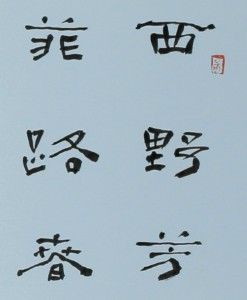 西野芳
菲路春